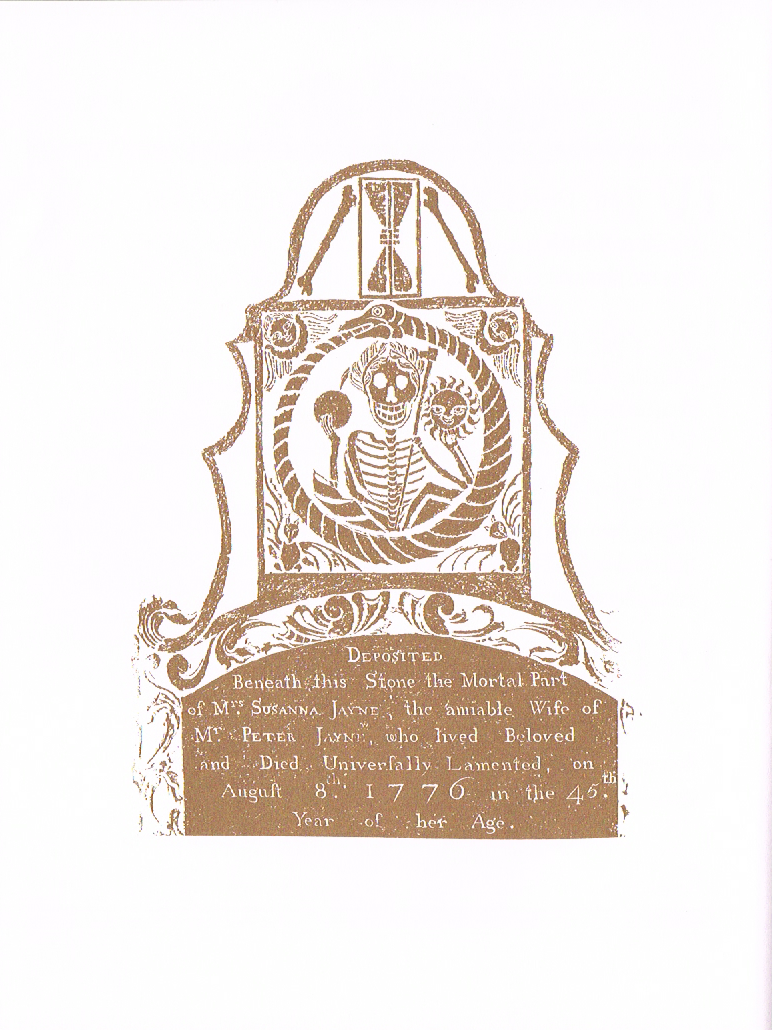 DEPOSITED
Beneath this Stone the Mortal Part
of Mrs. SUSANNA JAYNE, the amiable Wife of
Mr. PETER JAYNE, who lived Beloved
and Died Univerſally Lamented, on
Auguſt 8th. 1776 in the 45th.
Year of her Age.